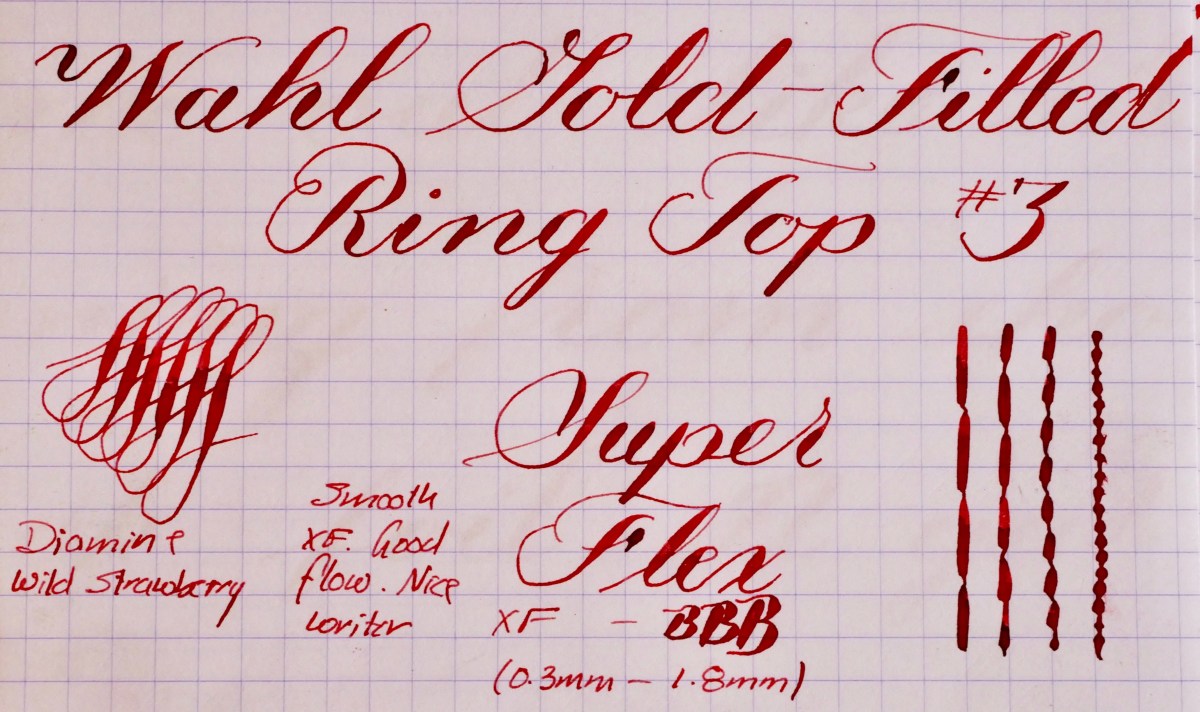 Wahl Gold-Filled
Ring Top #3
Super
Flex
XF - BBB
(0.3mm - 1.8mm)
Smooth
XF. Good
flow. Nice
writer
Diamine
Wild Strawberry